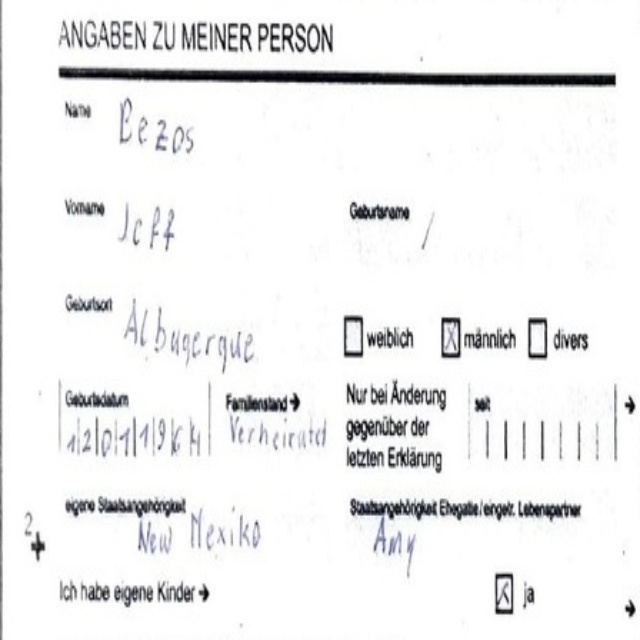 ANGABEN ZU MEINER PERSON
Name
Bezos
Vorname
Jeff
Geburtsname
/
Geburtsort
Albuqerque
weiblich
männlich
divers
Geburtsdatum
12011964
Familienstand →
Verheiratet
Nur bei Änderung
gegenüber der
letzten Erklärung
seit
→
eigene Staatsangehörigkeit
New Mexiko
Staatsangehörigkeit Ehegatte / eingetr. Lebenspartner
Amy
2
Ich habe eigene Kinder →
ja
→